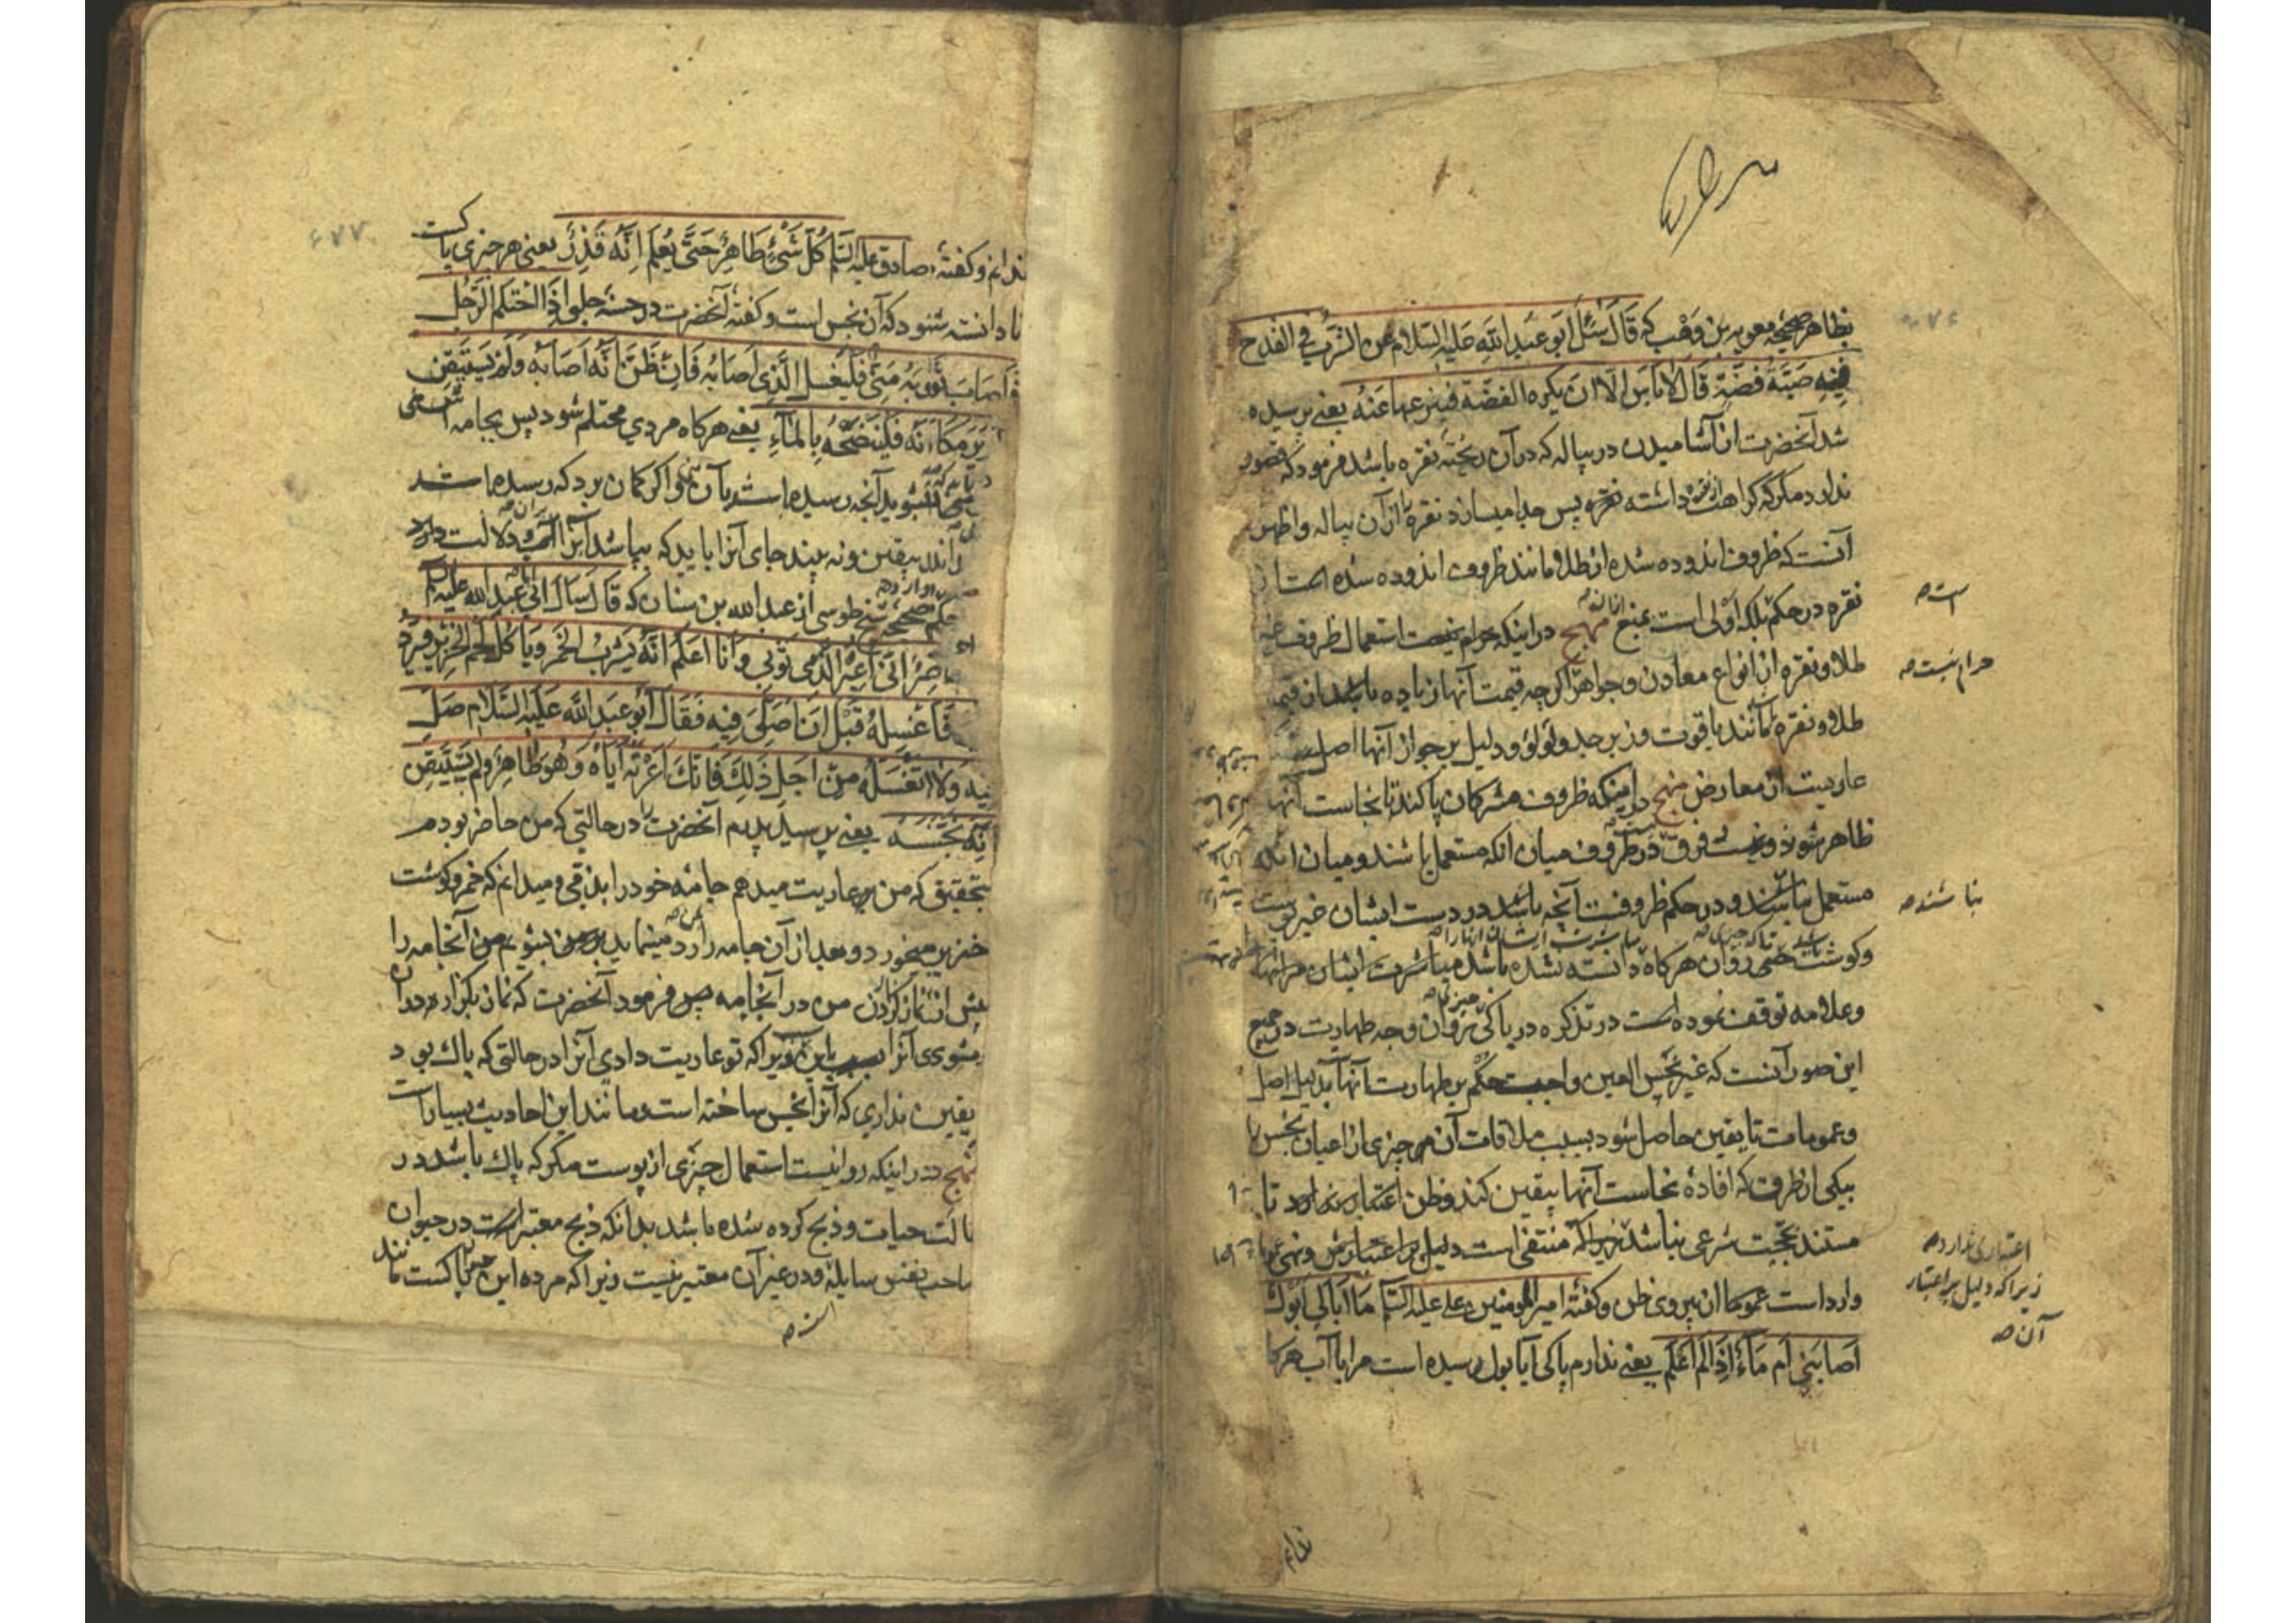 بظاهر صحیحه معویه بن وهب که قَالَ سُئِلَ اَبُو عَبدِ اللّه عَلیه السّلام عن الشّرب فی القدح
فیه ضَبّةُ فضّةٍ قَالَ لا بَاس الّا ان یکره الفضّة فینزعها عَنهُ یعنی پرسیده
شد آنحضرت از آشامیدن در پیاله که در آن ریخته نقره باشد فرمود که قصور
ندارد مکر که کراهت داشته نقره پس جدا میسازد نقره را از آن پیاله و اظهر
آنست که ظروف اندوده شده از طلا مانند ظروف اندوده شده است از
نقره در حکم بلکه اَوْلی است بمنع منهج در اینکه حرام نیست استعمال ظروف غیر
است صح
طلا و نقره از انواع معادن و جواهر اکر چه قیمت آنها زیاده باشد از قیمت
حرام نیست صح
طلا و نقره مانند یاقوت و زبرجد و لولؤ و دلیل بر جواز آنها اصل است
عاریست از معارض منهج در اینکه ظروف مشرکان پاکند تا نجاست آنها
ظاهر شود و نیست فرق در ظروف میان آنکه مستعمل باشند و میان آنکه
مستعمل نباشند و در حکم ظروفست آنچه باشد در دست ایشان غیر پوست
نباشند صح
وکوشت حتی روان هرکاه دانسته نشده باشد مباشرت ایشان مر آنها را
وعلامه توقف نموده است در تذکره در پاکی روان وجه طهارت در جمیع
این صور آنست که غیر نجس العین واجبست حکم بر طهارت آنها بدلیل اصل
وعمومات تا یقین حاصل شود بسبب ملاقات آن چیزی از اعیان نجس یا
بیکی از طرف که افادهٔ نجاست آنها بیقین کند و ظن اعتبار ندارد تا
مستند بحجیت شرعی نباشد زیرا که منتفی است دلیل بر اعتبارش و نهی
اعتباری ندارد صح
زیرا که دلیل بر اعتبار
آن صح
وارد است عموما از پیروی ظن وکفته امیر المومنین علی علیه السّلم مَا اُبَالی اَبَولٌ
اَصَابَنی اَم مَاءٌ اِذَا لَم اَعْلَم یعنی ندارم باکی آیا بول رسیده است مرا یا آب هرکا
ندانم
ندانم وکفته صادق علیه السّلم کُلّ شَیْءٍ طَاهِرٌ حَتّی یُعْلَم اَنّه قَذِرٌ یعنی هر چیزی پاکست
تا دانسته شود که آن نجس است وکفته آنحضرت در حسنه حلبی اِذَا احْتَلَم الرّجُل
فَاَصَابَ ثَوْبَه مَنِیٌّ فَلْیَغْسِل الّذِی اَصَابَه فَاِن ظَنّ اَنّه اَصَابَه وَلَم یَسْتَیقِن
وَلَم یَرَ مَکَانَه فَلْیَنْضَحْهُ بِالمَاءِ یعنی هرکاه مردی محتلم شود پس بجامه اش منی
بشوید آنچه رسیده است بآن منی و اکر کمان برد که رسیده است
وندارد بیقین ونه بیند جای آنرا باید که بپاشد آنرا آب ودلالت دارد
حکم صحیحه شیخ طوسی از عبدالله بن سنان که قَالَ سَاَلَ اَبی عَبدِ الله علیه السلم
وانا حَاضِرٌ اِنّی اُعِیرُ الذّمّی ثَوْبِی وَاَنَا اَعْلَمُ اَنّه یَشْرَبُ الخَمر وَیَاکُل لَحْم الخنزیر فَیَرُدّ
فَاَغْسِلُه قَبْلَ اَن اُصَلّی فِیه فَقَالَ اَبُو عَبدِ اللّه عَلیه السّلام صَلّ
فیه وَلَا تَغْسِلْه مِن اَجَلِ ذَلِک فَاِنّک اَعَرْتَه اِیّاه وَهُوَ طَاهِرٌ وَلَم تَسْتَیقِن
اَنّه نَجّسَه یعنی پرسید پدرم آنحضرت را در حالتی که من حاضر بودم
بتحقیق که من بعاریت میدهم جامه خود را بذمّی ومیدانم که خمر وکوشت
خنزیر میخورد وبعد از آن جامه را رد مینماید بر من بشویم من آنجامه را
پیش از نماز کردن من در آنجامه پس فرمود آنحضرت که نماز بکزار در آن
ومشوی آنرا بسبب این زیرا که تو عاریت دادی آنرا در حالتی که پاک بود و
یقین نداری که آنرا نجس ساخته است ومانند این احادیث بسیار است
منهج در اینکه روا نیست استعمال چیزی از پوست مکر که پاک باشد در
حالت حیات وذبح کرده شده باشد بدانکه ذبح معتبر است در حیوان
صاحب نفس سایله ودر غیر آن معتبر نیست زیرا که مرده این پاکست مانند